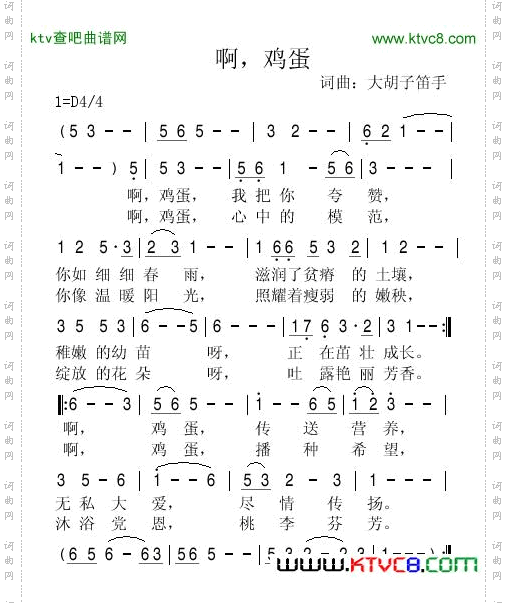 ktv查吧曲谱网
www.ktvc8.com
啊，鸡蛋
词曲：大胡子笛手
1=D4/4
(5 3 - - | 5 6 5 - - | 3 2 - - | 6 2 1 - - |
1 - - ) 5 | 5 3 - - | 5 6 1 - 5 6 | 3 - - - |
啊，鸡蛋， 我 把 你 夸 赞，
啊，鸡蛋， 心 中 的 模 范，
1 2 5 · 3 | 2 3 1 - - | 1 6 6 5 3 2 | 5 - - - |
你如 细 细 春 雨， 滋润了贫瘠 的 土壤，
你像 温 暖 阳 光， 照耀着瘦弱 的 嫩秧，
3 5 5 3 | 6 - - 5 | 6 - - - | 1 7 6 3 · 2 | 1 - - :||
稚嫩 的 幼 苗 呀， 正 在茁 壮 成长。
绽放 的 花 朵 呀， 吐 露艳 丽 芳香。
||: 6 - - 3 | 5 6 5 - - | 1 - - 6 5 | 1 2 3 - - |
啊， 鸡 蛋， 传 送 营 养，
啊， 鸡 蛋， 播 种 希 望，
3 - 5 - 6 | 1 - - 6 | 5 3 2 - - | 1 - - - |
无 私 大 爱， 尽 情 传 扬。
沐 浴 党 恩， 桃 李 芬 芳。
(6 5 6 - 6 3 | 5 6 5 - - | 5 3 2 - 2 | 1 - - - | 1 - - ) :||
www.KTVC8.com
词曲网